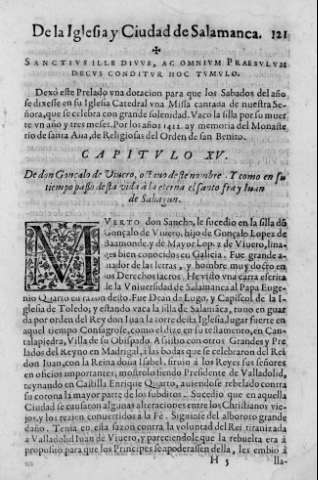 De la Iglesia y Ciudad de Salamanca. 121
SANCTIVS ILLE DIVVS, AC OMNIVM PRAESVLVM
DECVS CONDITVR HOC TVMVLO.
Dexò este Prelado vna dotacion para que los Sabados del año
se dixesse en su Iglesia Catedral vna Missa cantada de nuestra Se-
ñora, que se celebra con grande solenidad. Vaco la silla por su muer
te vn año y tres meses. Por los años 1412. ay memoria del Monaste
rio de santa Ana, de Religiosas del Orden de san Benito.
CAPITVLO XV.
De don Gonçalo de Viuero, octauo deste nombre. Y como en su
tiempo passo desta vida à la eterna el santo fray Iuan
de Sahagun.
MVERTO don Sancho, le sucedio en la silla dõ
Gonçalo de Viuero, hijo de Gonçalo Lopez de
Baamonde, y de Mayor Lopez de Viuero, lina-
ges bien conocidos en Galicia. Fue grande a-
mador de las letras, y hombre muy docto en
los Derechos sacros. He visto vna carta escrita
de la Vniuersidad de Salamanca al Papa Euge-
nio Quarto en razon desto. Fue Dean de Lugo, y Capiscol de la I-
glesia de Toledo, y estando vaca la silla de Salamãca, tuuo en guar
da por orden del Rey don Iuan la torre desta Iglesia, lugar fuerte en
aquel tiempo. Consagrose, como el dize en su testamento, en Can-
talapiedra, Villa de su Obispado. Assistio con otros Grandes y Pre
lados del Reyno en Madrigal, à las bodas que se celebraron del Rey
don Iuan, con la Reina doña Isabel, siruio à los Reyes sus señores
en oficios importantes, mostrolo siendo Presidente de Valladolid,
reynando en Castilla Enrique Quarto, auiendose rebelado contra
su corona la mayor parte de los subditos. Sucedio que en aquella
Ciudad se causaron algunas alteraciones entre los Christianos vie-
jos, y los rezien conuertidos à la Fè. Siguiose del alboroto grande
daño. Tenia en esta sazon contra la voluntad del Rey tiranizada
à Valladolid Iuan de Viuero, y pareciendole que la rebuelta era à
proposito para que los Principes se apoderassen della, les embiò à
H 5 lla-